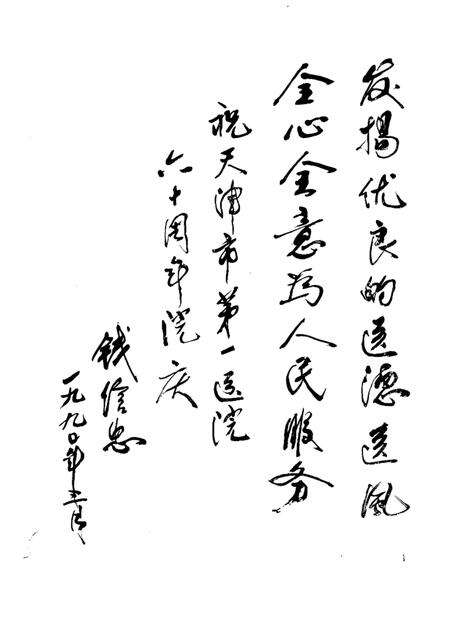 发扬优良的医德医风
全心全意为人民服务
祝天津市第一医院
六十周年院庆
钱信忠
一九九〇年三月